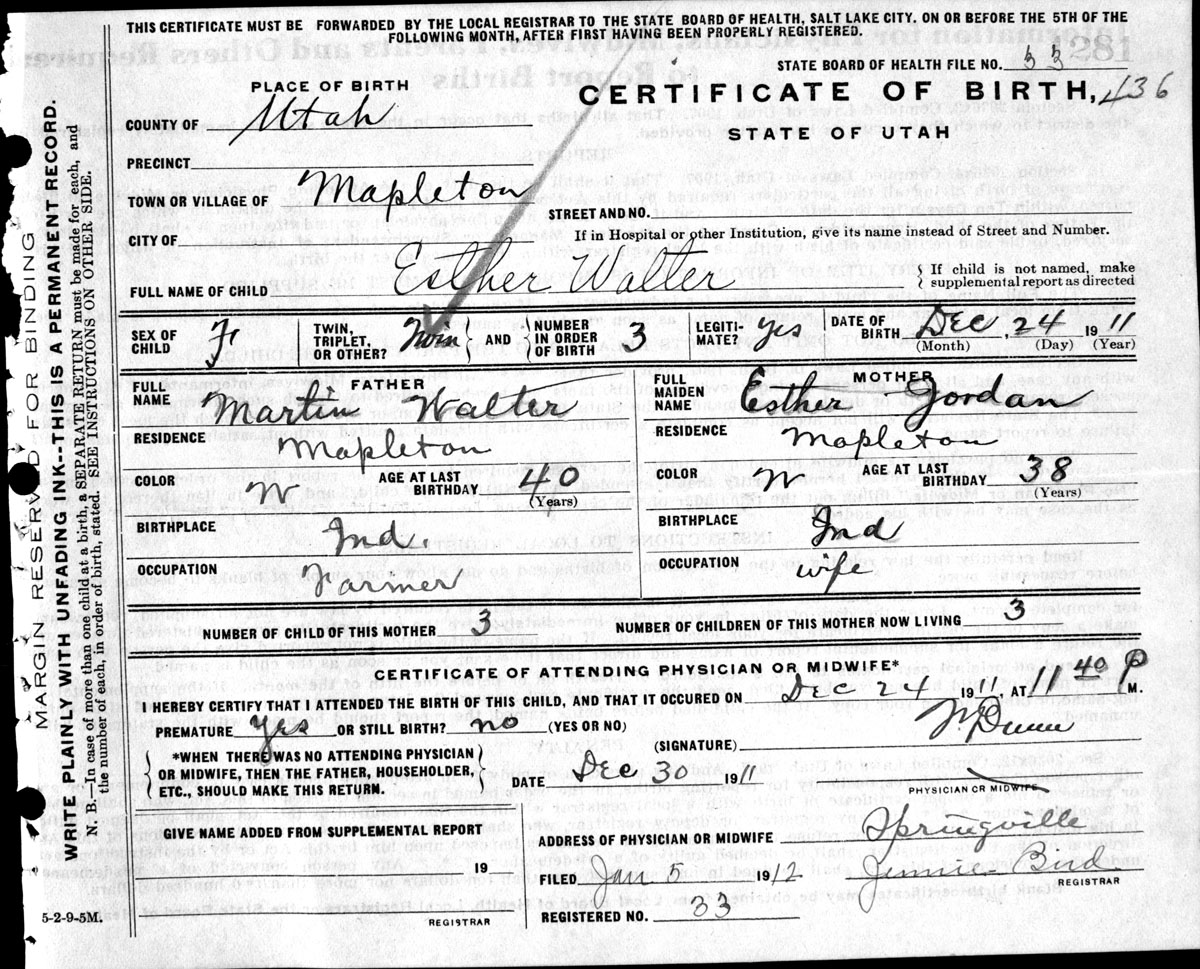 THIS CERTIFICATE MUST BE FORWARDED BY THE LOCAL REGISTRAR TO THE STATE BOARD OF HEALTH, SALT LAKE CITY. ON OR BEFORE THE 5TH OF THE
FOLLOWING MONTH, AFTER FIRST HAVING BEEN PROPERLY REGISTERED.
STATE BOARD OF HEALTH FILE NO. 33
PLACE OF BIRTH
CERTIFICATE OF BIRTH, 436
COUNTY OF Utah
STATE OF UTAH
PRECINCT
TOWN OR VILLAGE OF Mapleton
STREET AND NO.
CITY OF
If in Hospital or other Institution, give its name instead of Street and Number.
FULL NAME OF CHILD Esther Walter
If child is not named, make
supplemental report as directed
SEX OF CHILD F
TWIN, TRIPLET, OR OTHER? Twin
AND
NUMBER IN ORDER OF BIRTH 3
LEGITIMATE? yes
DATE OF BIRTH Dec, 24 1911
(Month) (Day) (Year)
FATHER
FULL NAME Martin Walter
RESIDENCE Mapleton
COLOR W
AGE AT LAST BIRTHDAY 40
(Years)
BIRTHPLACE Ind.
OCCUPATION Farmer
MOTHER
FULL MAIDEN NAME Esther Jordan
RESIDENCE Mapleton
COLOR W
AGE AT LAST BIRTHDAY 38
(Years)
BIRTHPLACE Ind
OCCUPATION wife
NUMBER OF CHILD OF THIS MOTHER 3
NUMBER OF CHILDREN OF THIS MOTHER NOW LIVING 3
CERTIFICATE OF ATTENDING PHYSICIAN OR MIDWIFE*
I HEREBY CERTIFY THAT I ATTENDED THE BIRTH OF THIS CHILD, AND THAT IT OCCURED ON Dec 24 1911, AT 11 40 P M.
PREMATURE yes OR STILL BIRTH? no (YES OR NO)
(SIGNATURE)
*WHEN THERE WAS NO ATTENDING PHYSICIAN
OR MIDWIFE, THEN THE FATHER, HOUSEHOLDER,
ETC., SHOULD MAKE THIS RETURN.
Dec 30 1911
PHYSICIAN OR MIDWIFE
GIVE NAME ADDED FROM SUPPLEMENTAL REPORT
19
REGISTRAR
ADDRESS OF PHYSICIAN OR MIDWIFE Springville
FILED Jan 5 1912 Jennie Bird
REGISTRAR
REGISTERED NO. 33
5-2-9-5M.
MARGIN RESERVED FOR BINDING
WRITE PLAINLY WITH UNFADING INK--THIS IS A PERMANENT RECORD.
N. B.—In case of more than one child at a birth, a SEPARATE RETURN must be made for each, and
the number of each, in order of birth, stated. SEE INSTRUCTIONS ON OTHER SIDE.